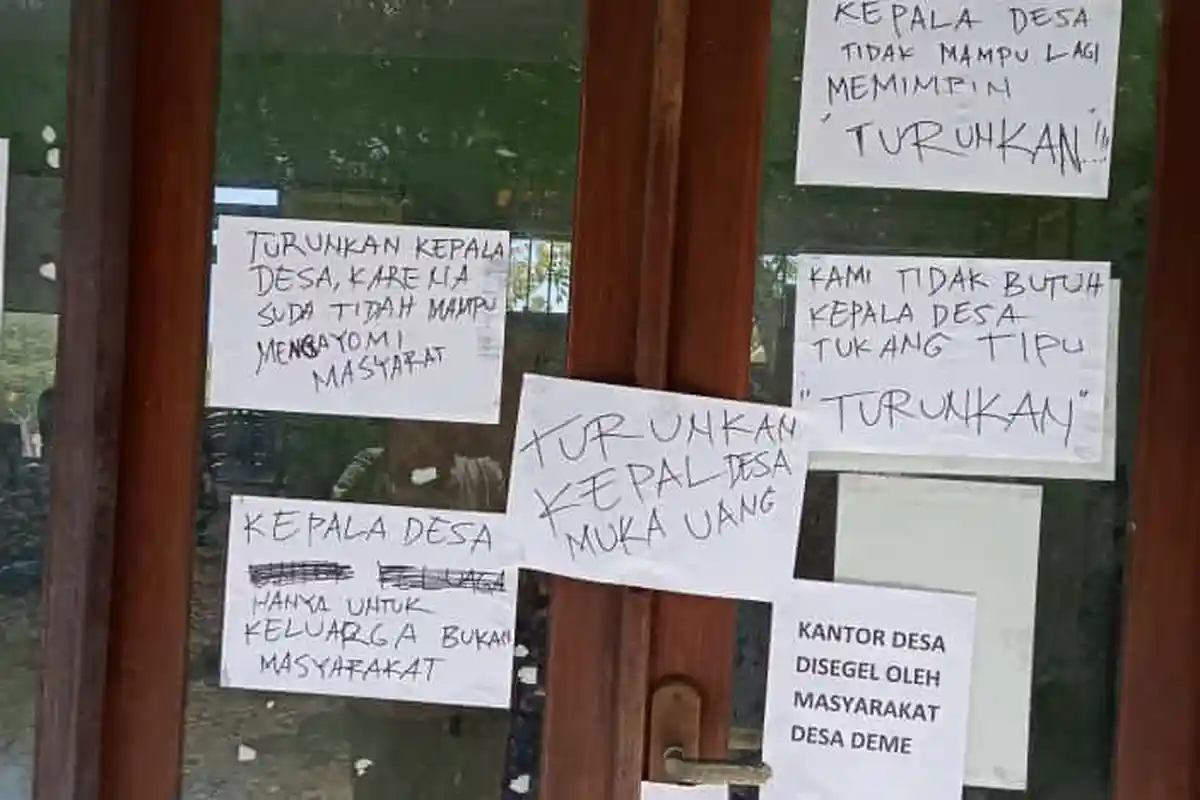 KEPALA DESA
TIDAK MAMPU LAGI
MEMIMPIN
"TURUNKAN"!!!
TURUNKAN KEPALA
DESA, KARENA
SUDA TIDAH MAMPU
MENGAYOMI
MASYARAT
KAMI TIDAK BUTUH
KEPALA DESA
TUKANG TIPU
"TURUNKAN"
TURUNKAN
KEPAL DESA
MUKA UANG
KEPALA DESA
HANYA UNTUK
KELUARGA BUKAN
MASYARAKAT
KANTOR DESA
DISEGEL OLEH
MASYARAKAT
DESA DEME